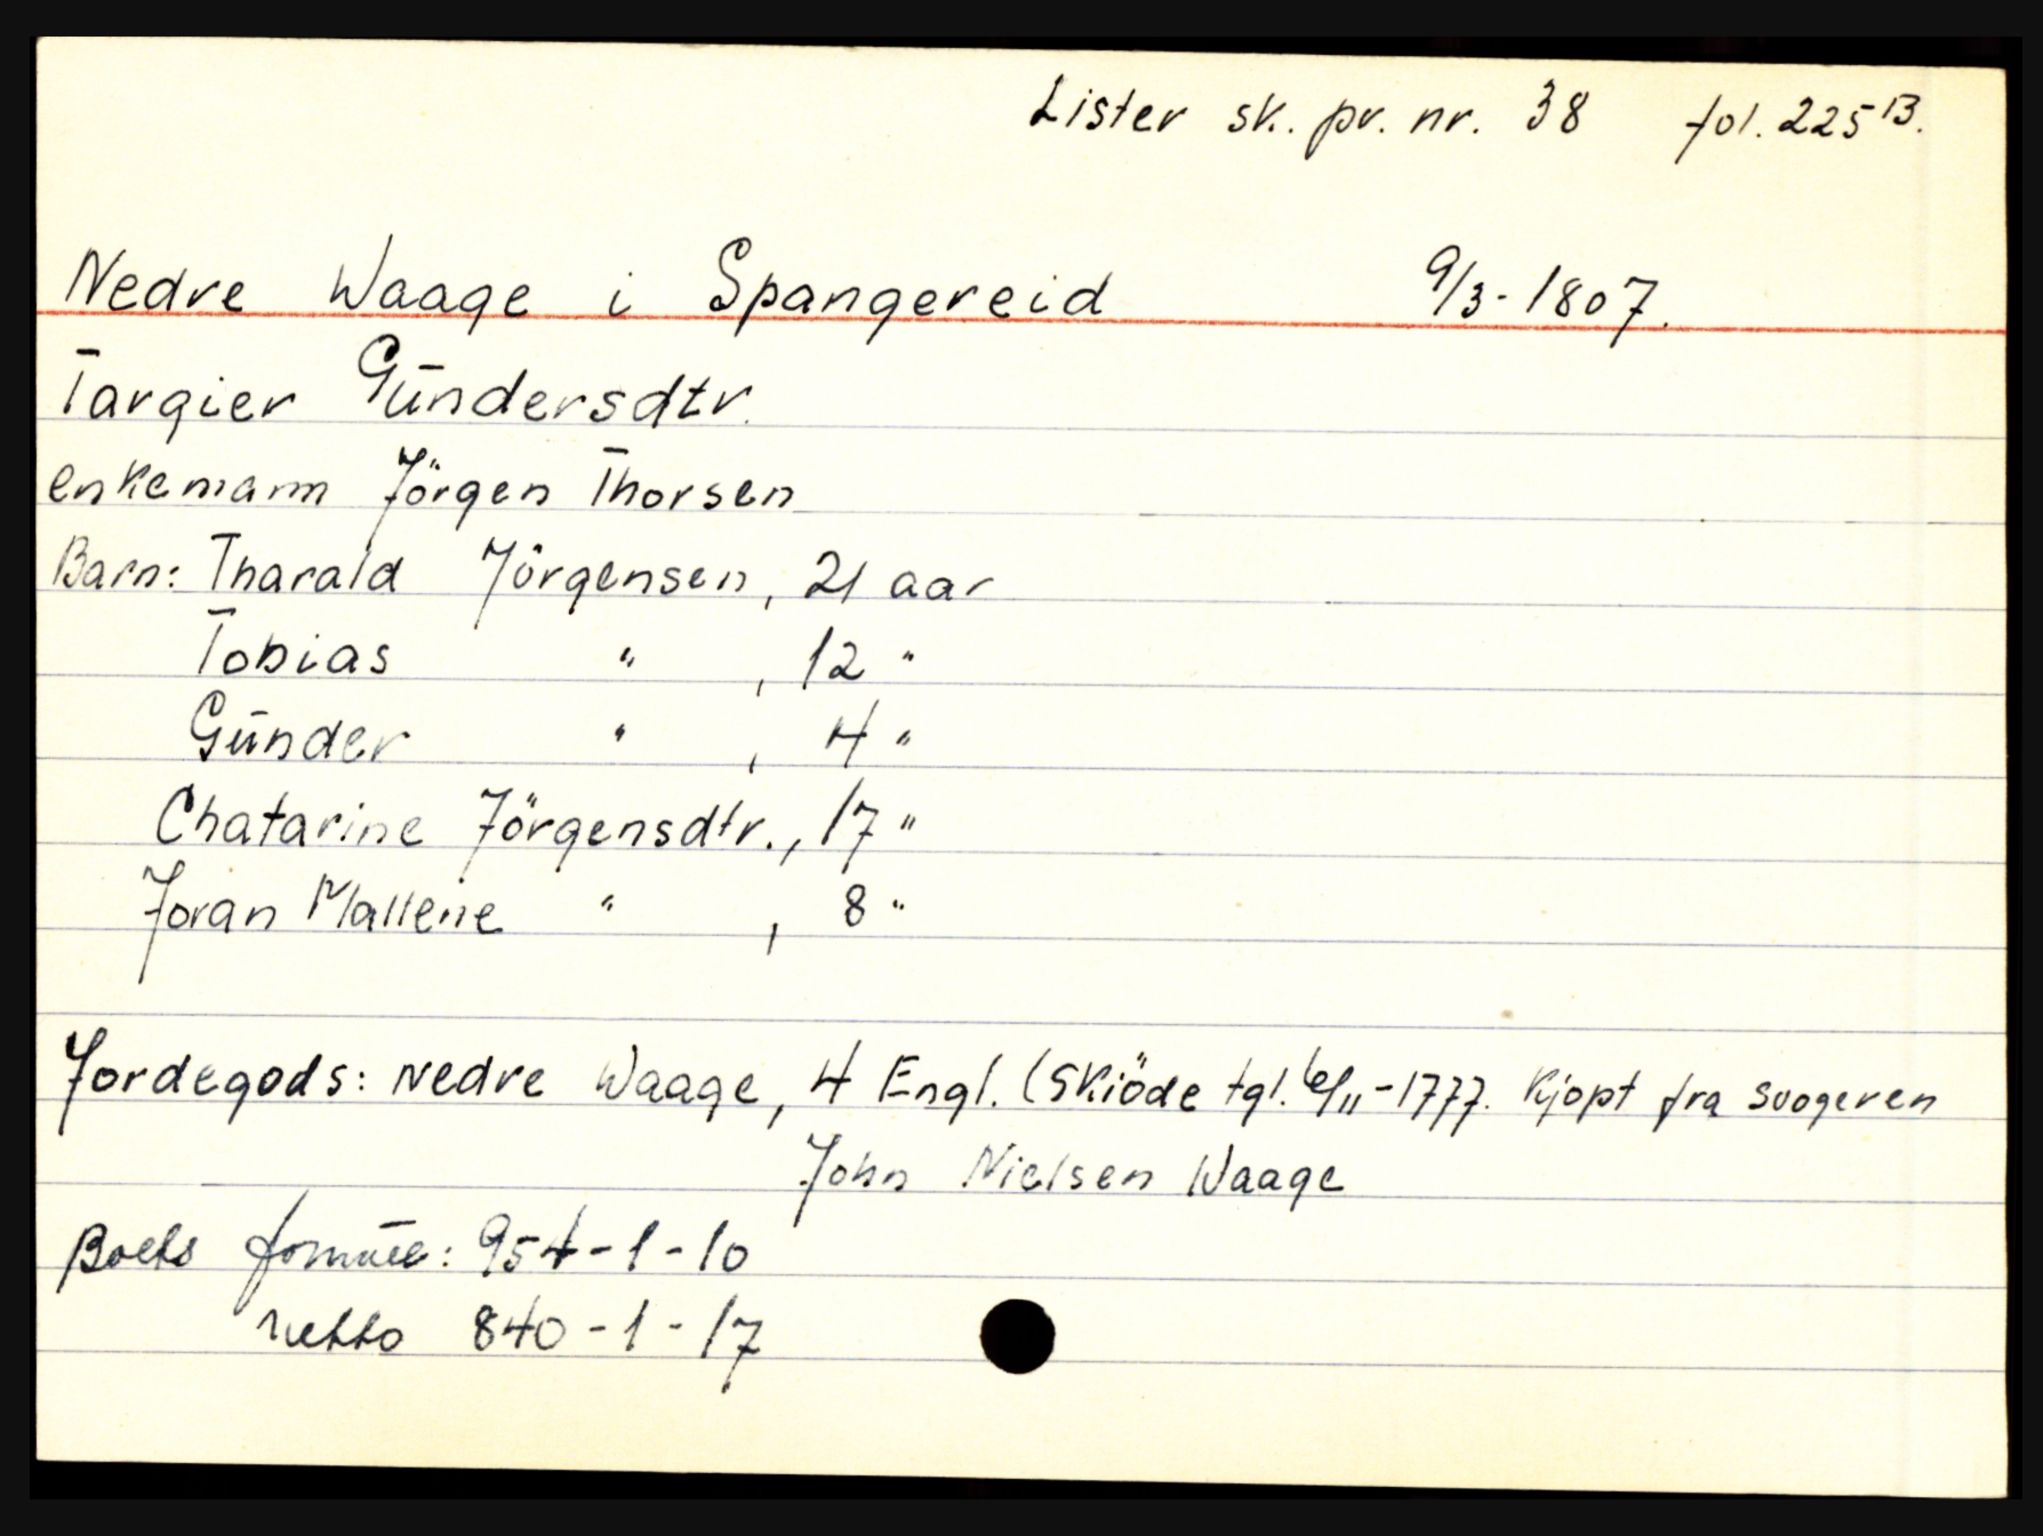 Lister sk. pr. nr. 38 fol. 225 B.
Nedre Waage i Spangereid 9/3-1807.
Targier Gūndersdtr.
enkemann Jörgen Thorsen
Barn: Tharald Jörgensen, 21 aar
Tobias " , 12 "
Gūnder " , 4 "
Chatarine Jörgensdtr., 17 "
Joran Mallene " , 8 "
Jordegods: Nedre Waage, 4 Engl. (Skiöde tgl. 6/11-1777. Kjøpt fra svogeren
John Nielsen Waage
Boets formūe: 954-1-10
netto 840-1-17